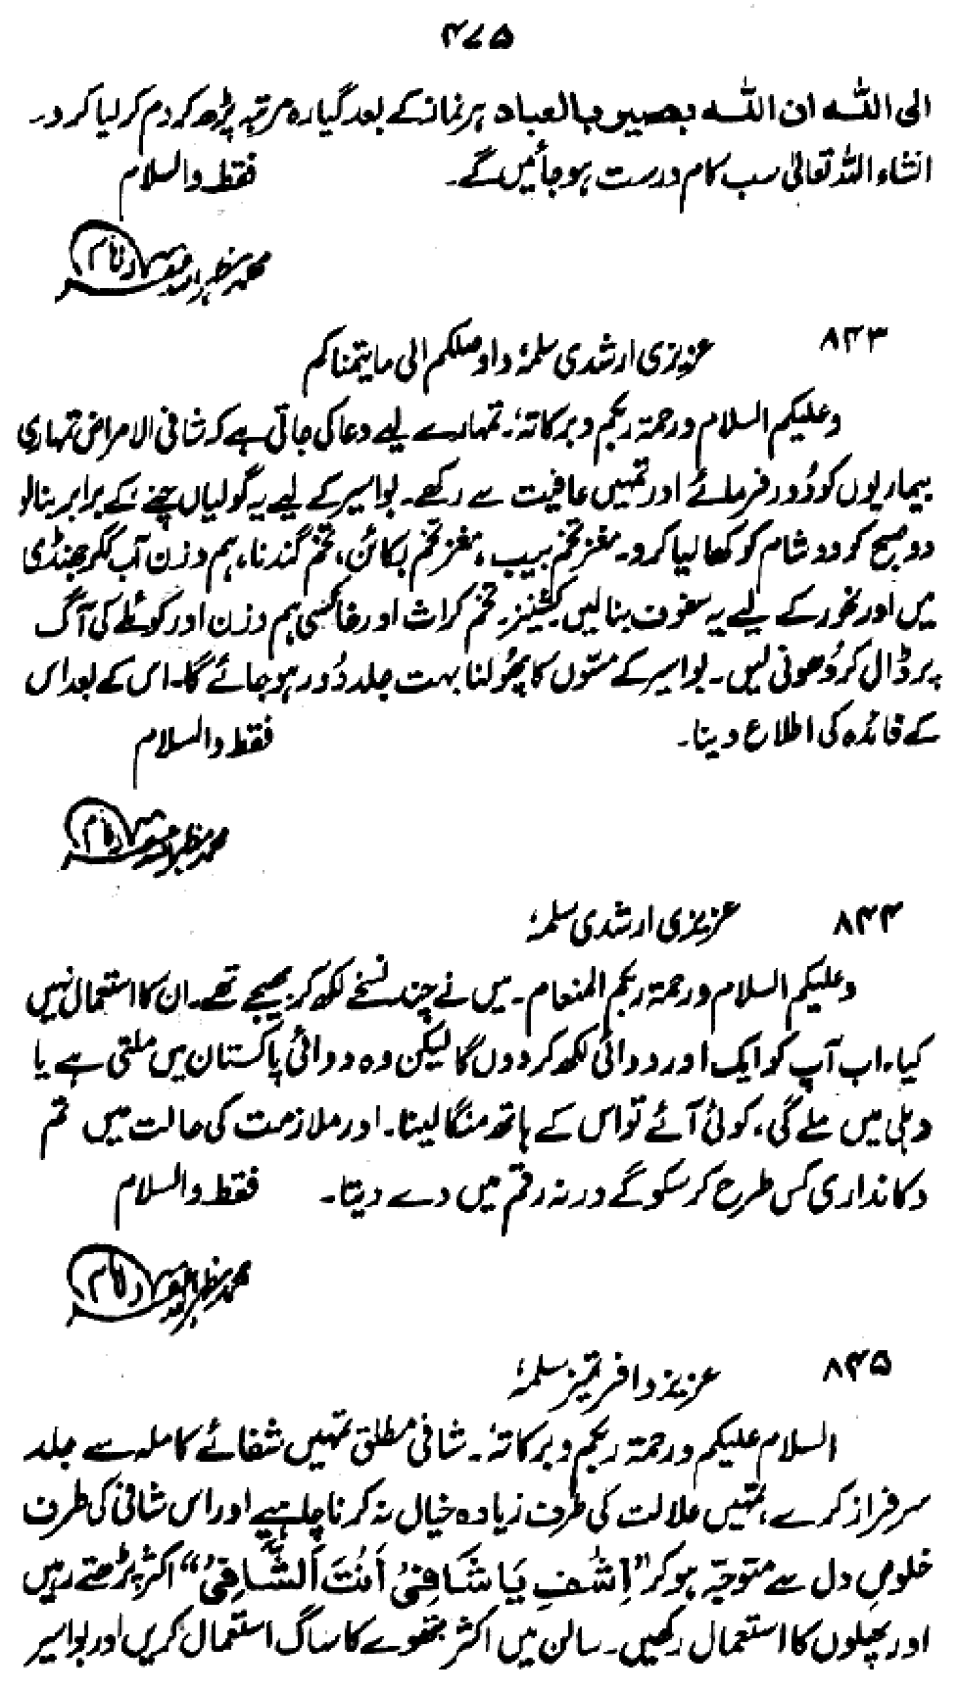 ۴۷۵
الی اللہ ان اللہ بصیر بالعباد ہر نماز کے بعد گیارہ مرتبہ پڑھ کر دم کر لیا کرو۔
انشاء اللہ تعالیٰ سب کام درست ہو جائیں گے۔ فقط والسلام
محمد مظہر اللہ
۸۴۳ عزیزی ارشدی سلمہٗ واوصلکم الی مایتمناکم
وعلیکم السلام ورحمۃ ربکم وبرکاتہٗ۔ تمہارے لیے دعا کی جاتی ہے کہ شافی الامراض تمہاری
بیماریوں کو دُور فرمائے اور تمہیں عافیت سے رکھے۔ بواسیر کے لیے یہ گولیاں چنے کے برابر بنا لو
دو صبح کو دو شام کو کھا لیا کرو۔ مغز تخم بیب، مغز تخم بکائن، تخم گندنا، ہم وزن آب ککرجھنڈی
میں اور بخور کے لیے یہ سفوف بنا لیں کشنیز۔ تخم کراث اور خاکسی ہم وزن اور کوئلے کی آگ
پر ڈال کر دُھونی لیں۔ بواسیر کے مسّوں کا پُھولنا بہت جلد دُور ہو جائے گا۔ اس کے بعد اس
کے فائدہ کی اطلاع دینا۔ فقط والسلام
محمد مظہر اللہ
۸۴۴ عزیزی ارشدی سلمہٗ
وعلیکم السلام ورحمۃ ربکم المنعام۔ میں نے چند نسخے لکھ کر بھیجے تھے۔ ان کا استعمال نہیں
کیا۔ اب آپ کو ایک اور دوائی لکھ کر دوں گا لیکن وہ دوائی پاکستان میں ملتی ہے یا
دہلی میں ملے گی، کوئی آئے تو اس کے ہاتھ منگا لینا۔ اور ملازمت کی حالت میں تم
دکانداری کس طرح کر سکو گے ورنہ رقم میں دے دیتا۔ فقط والسلام
محمد مظہر اللہ
۸۴۵ عزیز وافر تمیز سلمہٗ
السلام علیکم ورحمۃ ربکم وبرکاتہٗ۔ شافی مطلق تمہیں شفائے کاملہ سے جلد
سرفراز کرے، تمہیں علالت کی طرف زیادہ خیال نہ کرنا چاہیے اور اس شافی کی طرف
خلوصِ دل سے متوجہ ہو کر "اِشْفِ یَا شَافِیْ اَنْتَ الشَّافِیْ" اکثر پڑھتے رہیں
اور پھلوں کا استعمال رکھیں۔ سالن میں اکثر بتھوے کا ساگ استعمال کریں اور بواسیر